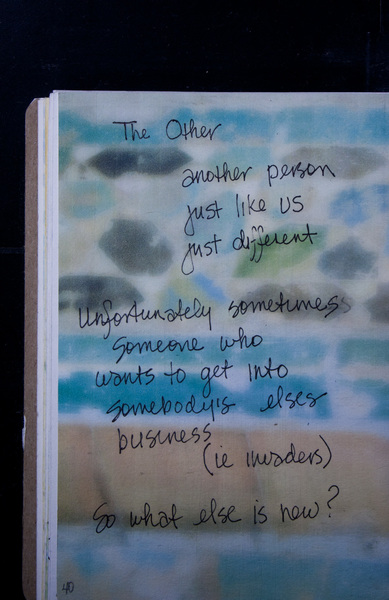 The Other
another person
just like us
just different
Unfortunately sometimes
someone who
wants to get into
somebody's elses
business
(ie invaders)
So what else is new?
40